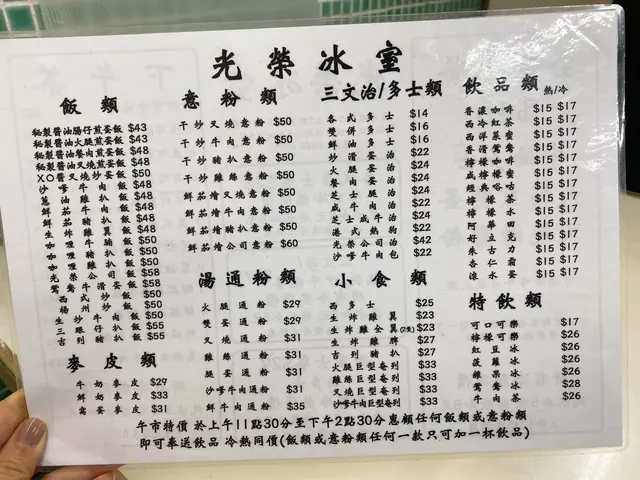 光榮冰室
飯類
秘製醬油腸仔煎蛋飯 $43
秘製醬油火腿煎蛋飯 $43
秘製醬油餐肉煎蛋飯 $48
秘製醬油叉燒煎蛋飯 $48
XO醬叉燒炒蛋飯 $50
沙嗲牛肉飯 $48
$48
$48
$48
$50
$50
$50
$58
$58
$50
$50
$55
$55
麥皮類
牛奶麥皮 $29
鮮奶麥皮 $33
窩蛋麥皮 $31
意粉類
干炒叉燒意粉 $50
干炒牛肉意粉 $50
干炒豬扒意粉 $50
干炒雞絲意粉 $50
鮮茄燴叉燒意粉 $50
鮮茄燴牛肉意粉 $50
鮮茄燴公司意粉 $60
湯通粉類
火腿通粉 $29
雙蛋通粉 $29
叉燒通粉 $31
雞絲通粉 $31
腿蛋通粉 $31
沙嗲牛肉通粉 $31
鮮牛肉通粉 $35
三文治/多士類
各式多士 $14
雙併多士 $16
鮮油多士 $16
炒滑蛋治 $22
火腿蛋治 $24
餐肉蛋治 $24
芝士蛋治 $24
咸牛肉治 $22
芝士咸牛治 $24
港式熱狗 $22
光榮公司治 $42
沙嗲牛肉包 $22
小食類
西多士 $25
生炸雞翼 $23
生炸雞全翼(2隻) $23
生炸雞髀 $27
吉列豬扒 $27
火腿巨型奄列 $33
叉燒巨型奄列 $33
沙嗲牛肉巨型奄列 $33
飲品類 熱/冷
香濃咖啡 $15 $17
西冷紅茶 $15 $17
西洋菜蜜 $15 $17
香滑鴛鴦 $15 $17
檸檬咖啡 $15 $17
咸檸檬蜜 $15 $17
經典咯咕 $15 $17
檸檬茶 $15 $17
檸檬水 $15 $17
阿華田 $15 $17
好立克 $15 $17
朱古力 $15 $17
杏仁霜 $15 $17
滾水蛋 $15 $17
特飲類
可口可樂 $17
檸檬可樂 $26
紅豆冰 $26
菠蘿冰 $26
雜果冰 $26
鴛鴦冰 $28
牛肉冰 $26
午市特價 於上午11點30分至下午2點30分惠顧任何飯類或意粉類
即可奉送飲品 冷熱同價(飯類或意粉類任何一款只可加一杯飲品)